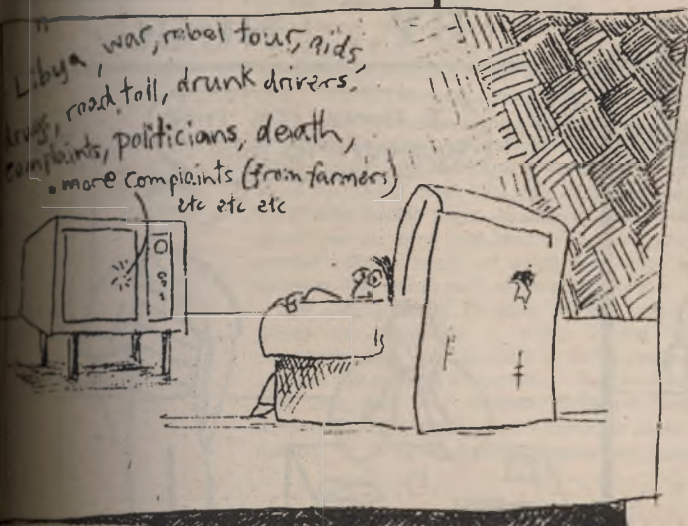 "Libya, war, rebel tour, aids,
road toll, drunk drivers,
drugs,
complaints, politicians, death,
. more complaints (from farmers)
etc etc etc